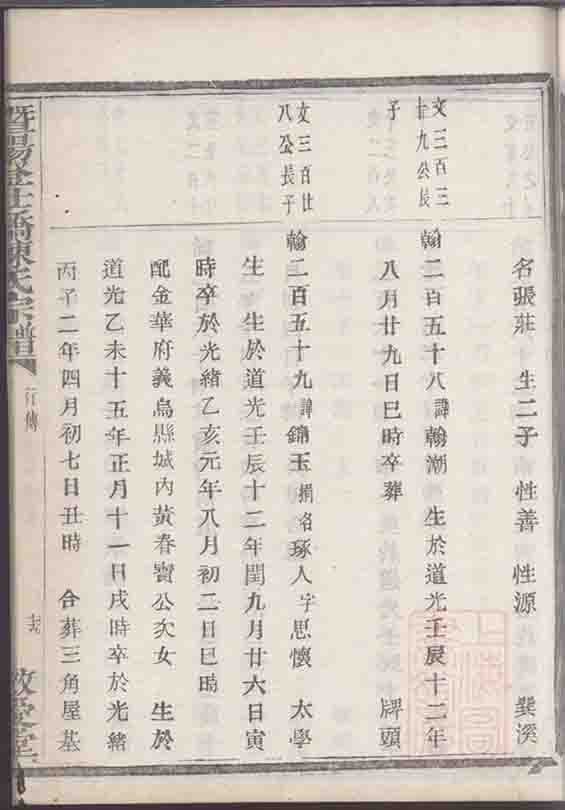 名張莊 生二子 性善 性源 巽溪
文三百三
廿九公長
子
翰二百五十八諱翰潮 生於道光壬辰十二年
八月廿九日巳時卒葬 牌頭
文三百廿
八公長子
翰二百五十九諱錦玉捐名琢人字思懷 太學
生 生於道光壬辰十二年閏九月廿六日寅
時卒於光緒乙亥元年八月初二日巳時
配金華府義烏縣城內黃春寶公次女 生於
道光乙未十五年正月十一日戌時卒於光緒
丙子二年四月初七日丑時 合葬三角屋基
暨陽 橋陳氏宗譜
行傳